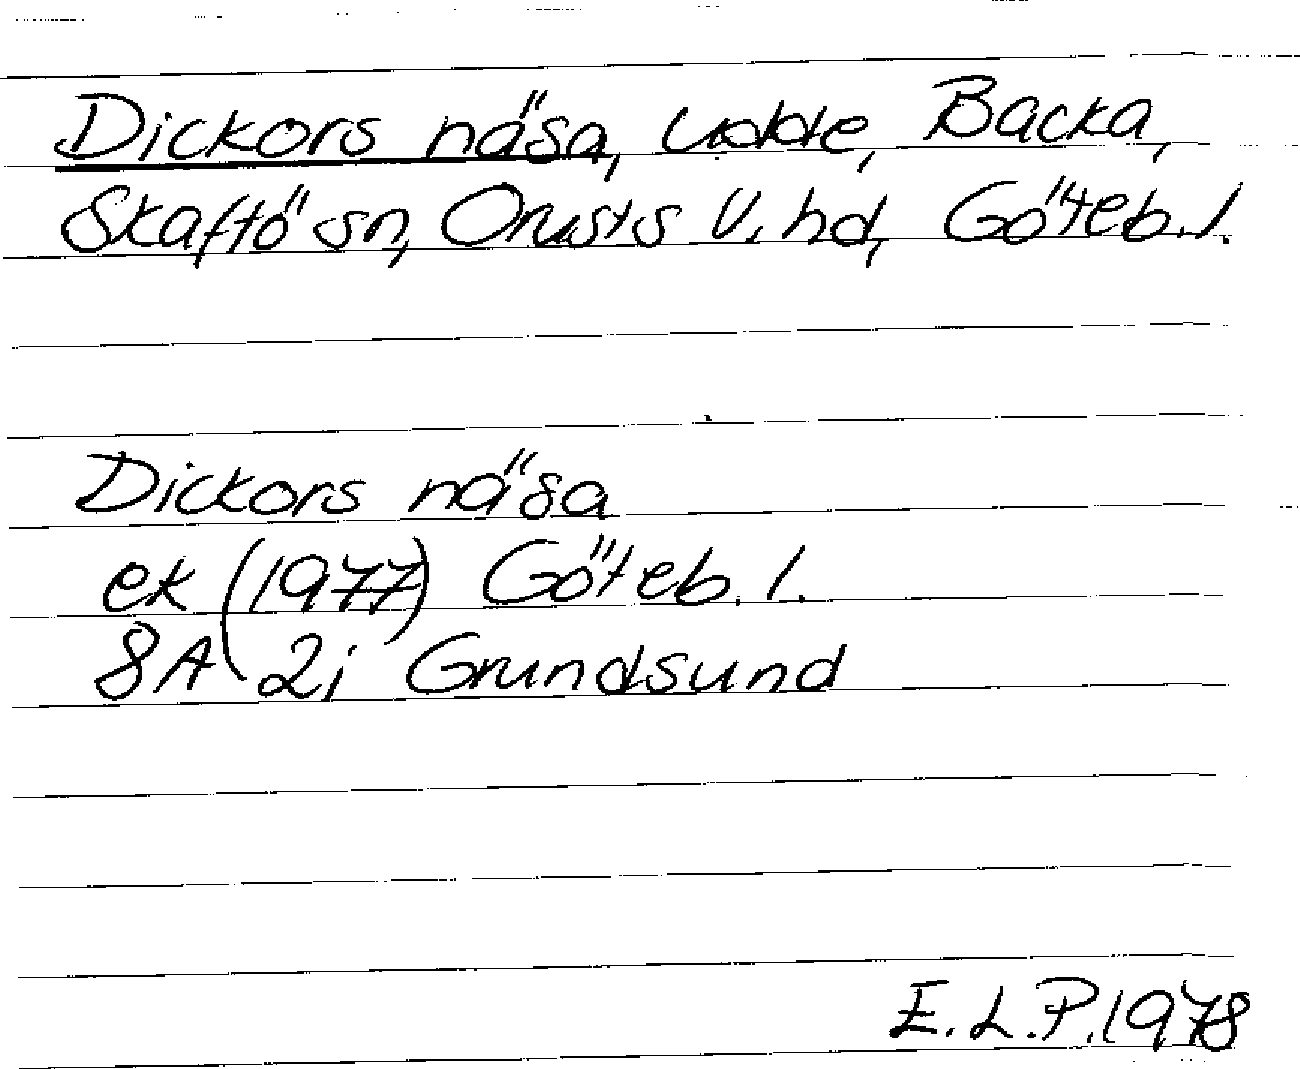 Dickors näsa, udde, Backa,
Skaftö sn, Orusts V. hd, Göteb. l.
Dickors näsa
ek (1977) Göteb. l.
8A 2j Grundsund
E. L. P. 1978